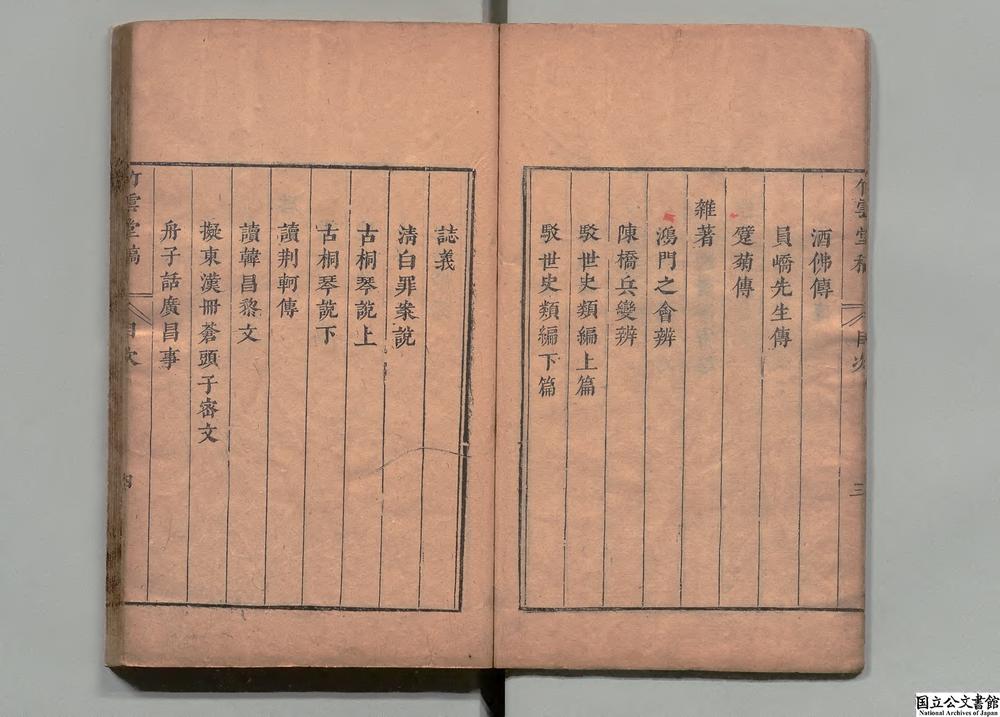 竹雲堂稿 目次 三
酒佛傳
員嶠先生傳
躄菊傳
雜著
鴻門之會辨
陳橋兵變辨
駁世史類編上篇
駁世史類編下篇
誌義
清白罪案說
古桐琴說上
古桐琴說下
讀荆軻傳
讀韓昌黎文
擬東漢冊蒼頭子密文
舟子話廣昌事
竹雲堂稿 目次 四
国立公文書館
National Archives of Japan